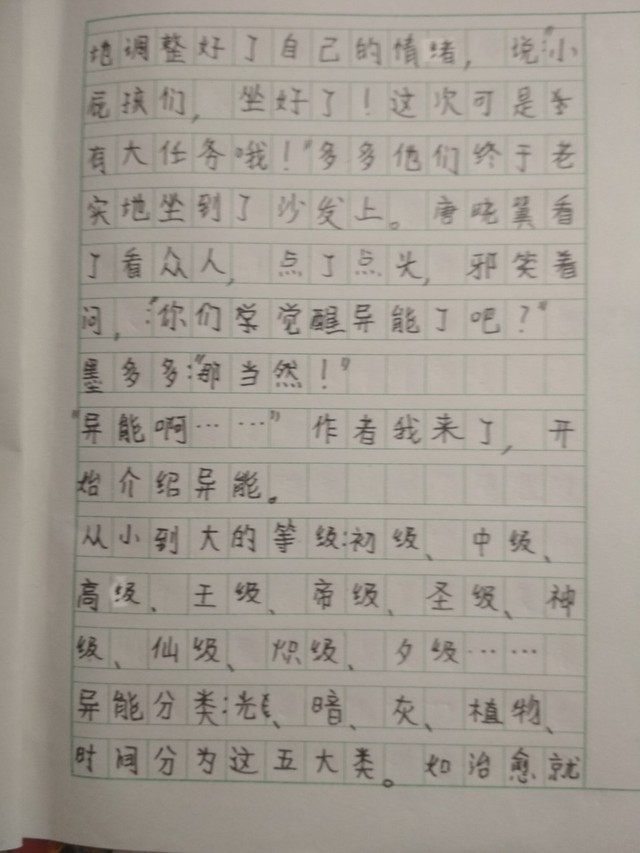 地调整好了自己的情绪，说：“小
屁孩们，坐好了！这次可是
有大任务哦！”多多他们终于老
实地坐到了沙发上。唐晓翼看
了看众人，点了点头，邪笑着
问，：“你们学觉醒异能了吧？”
墨多多：“那当然！”
“异能啊……”作者我来了，开
始介绍异能。
从小到大的等级：初级、中级、
高级、王级、帝级、圣级、神
级、仙级、炽级、夕级……
异能分类：光、暗、灰、植物、
时间分为这五大类。如治愈就